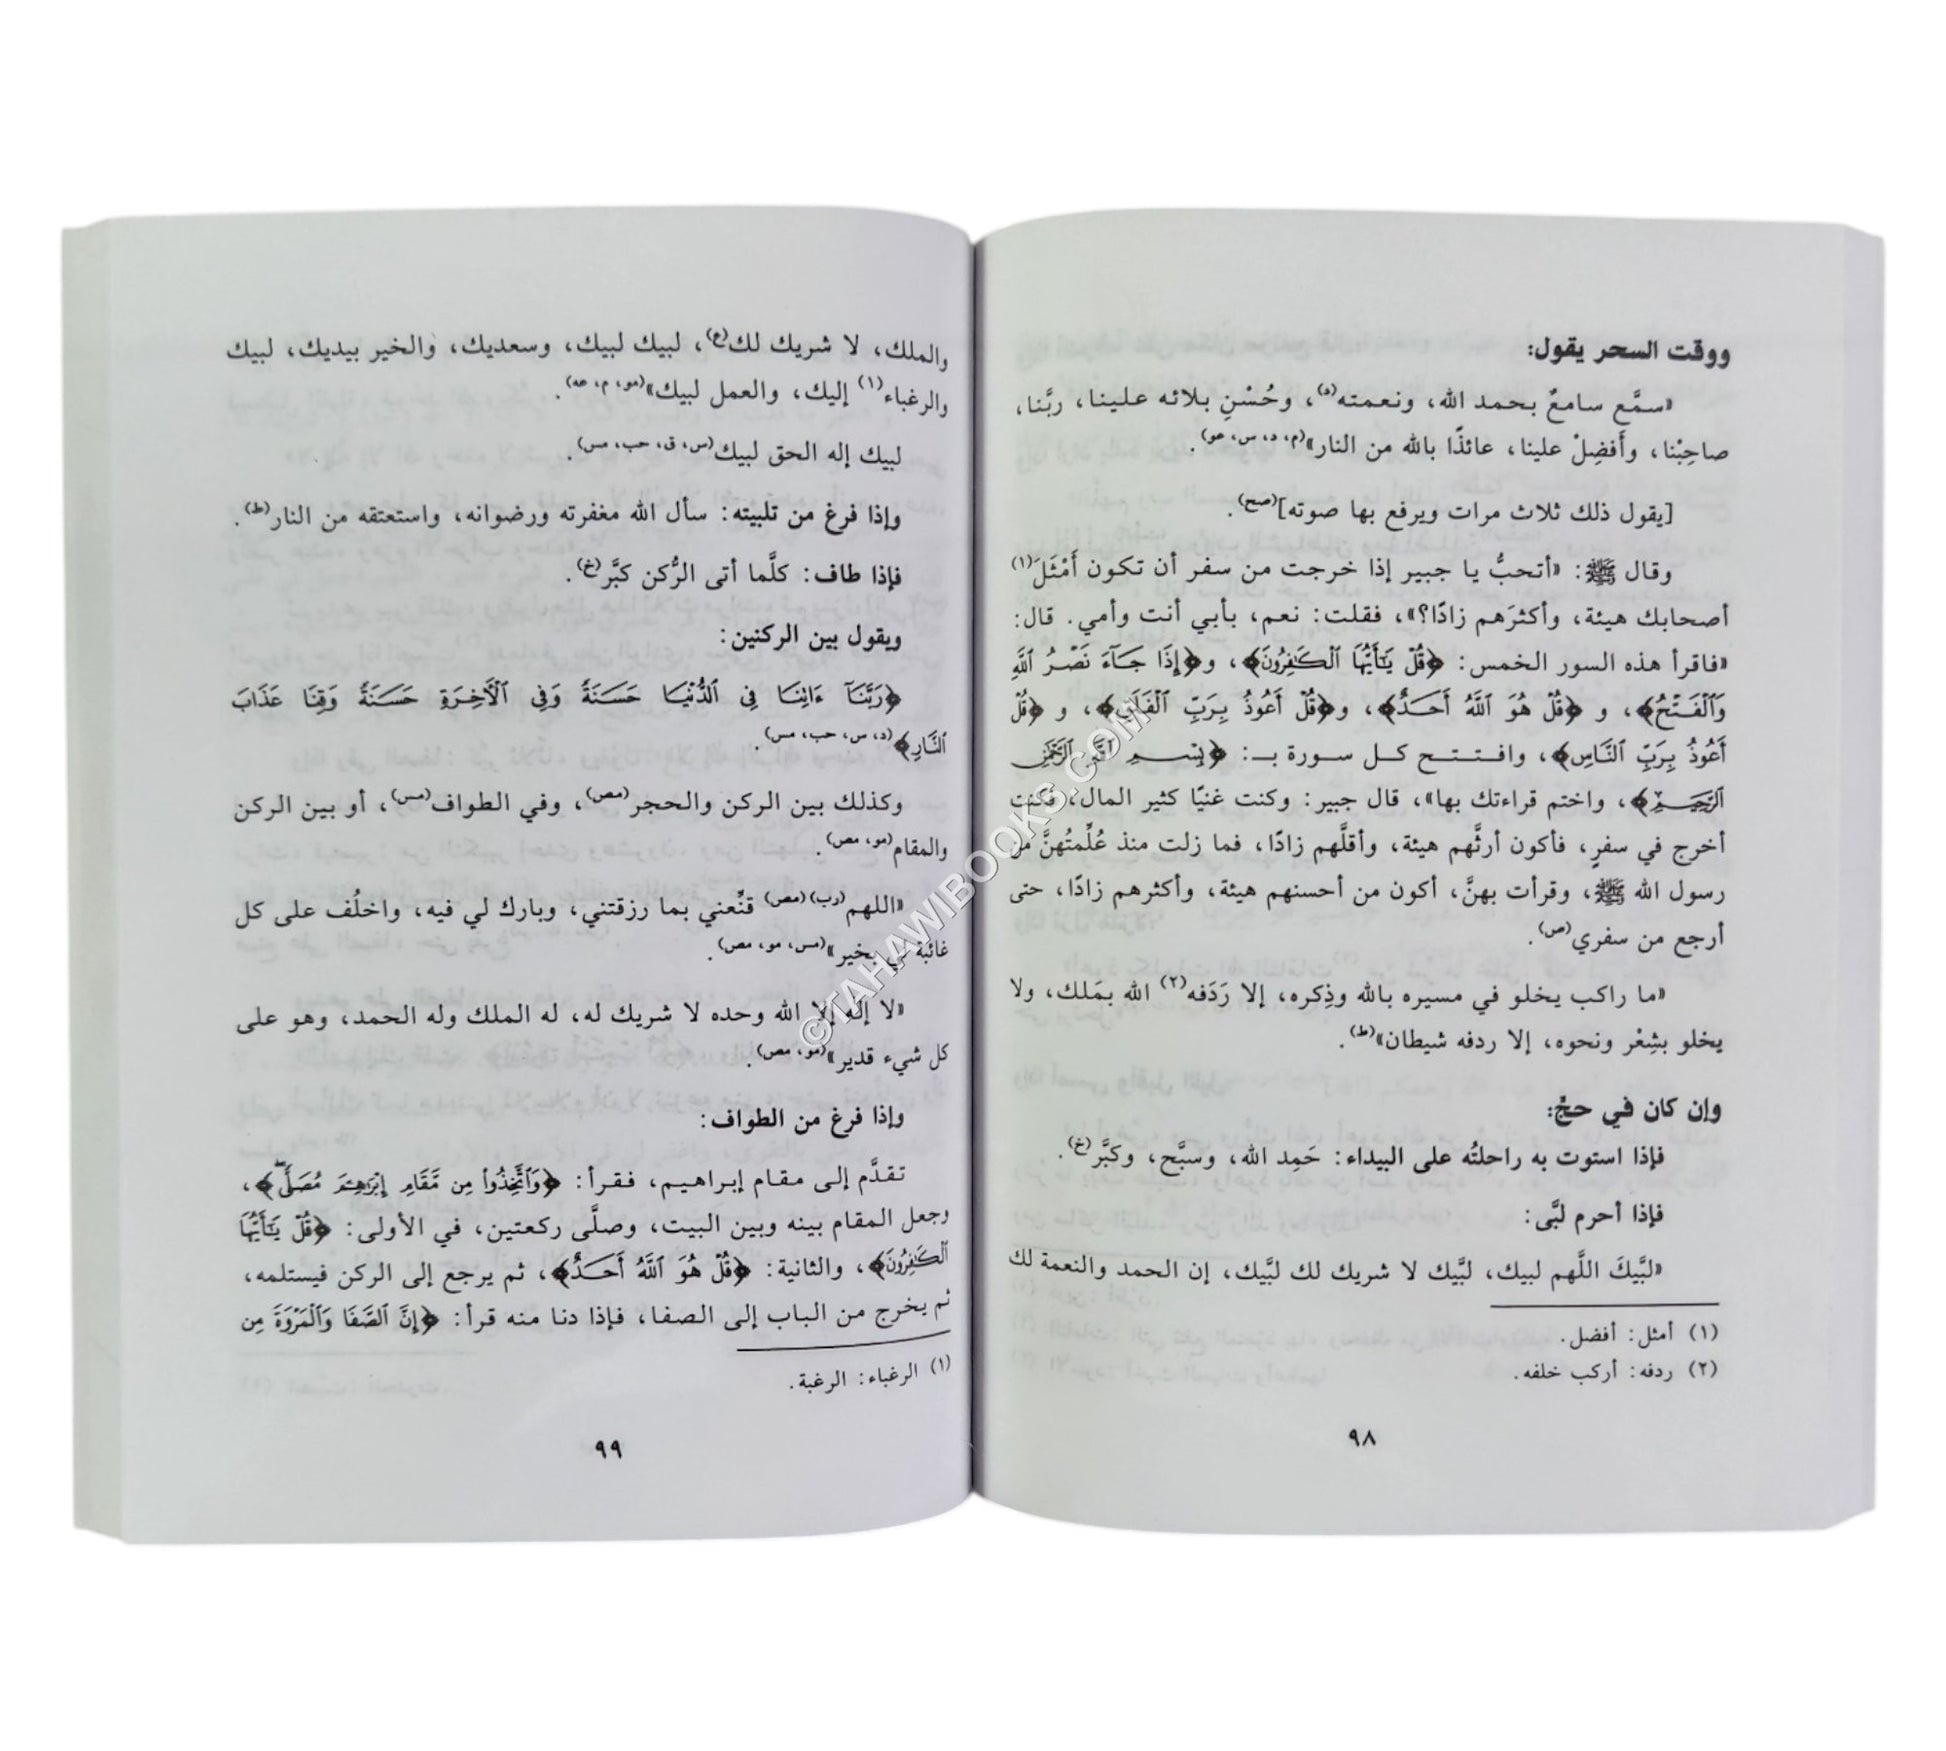 ووقت السحر يقول:
«سمَّع سامعٌ بحمد الله، ونعمته(د)، وحُسْنِ بلائه علينا، ربَّنا،
صاحِبْنا، وأَفضِلْ علينا، عائذًا بالله من النار»(م، د، س، عو).
[يقول ذلك ثلاث مرات ويرفع بها صوته](صح).
وقال ﷺ: «أتحبُّ يا جبير إذا خرجت من سفر أن تكون أَمْثَلَ(١)
أصحابك هيئة، وأكثرَهم زادًا؟»، فقلت: نعم، بأبي أنت وأمي. قال:
«فاقرأ هذه السور الخمس: ﴿قُلْ يَٰٓأَيُّهَا ٱلْكَٰفِرُونَ﴾، و﴿إِذَا جَآءَ نَصْرُ ٱللَّهِ
وَٱلْفَتْحُ﴾، و ﴿قُلْ هُوَ ٱللَّهُ أَحَدٌ﴾، و﴿قُلْ أَعُوذُ بِرَبِّ ٱلْفَلَقِ﴾، و ﴿قُلْ
أَعُوذُ بِرَبِّ ٱلنَّاسِ﴾، وافتتح كل سورة بـ: ﴿بِسْمِ ٱللَّهِ ٱلرَّحْمَٰنِ
ٱلرَّحِيمِ﴾، واختم قراءتك بها»، قال جبير: وكنت غنيًا كثير المال، فكنت
أخرج في سفرٍ، فأكون أرثَّهم هيئة، وأقلَّهم زادًا، فما زلت منذ عُلِّمتُهنَّ من
رسول الله ﷺ، وقرأت بهنَّ، أكون من أحسنهم هيئة، وأكثرهم زادًا، حتى
أرجع من سفري(ص).
«ما راكب يخلو في مسيره بالله وذِكره، إلا رَدَفه(٢) الله بمَلك، ولا
يخلو بشِعْر ونحوه، إلا ردفه شيطان»(ط).
وإن كان في حجٍّ:
فإذا استوت به راحلتُه على البيداء: حَمِد الله، وسبَّح، وكبَّر(خ).
فإذا أحرم لبَّى:
«لبَّيكَ اللَّهم لبيك، لبَّيك لا شريك لك لبَّيك، إن الحمد والنعمة لك
(١) أمثل: أفضل.
(٢) ردفه: أركب خلفه.
٩٨
والملك، لا شريك لك(ع)، لبيك لبيك، وسعديك، والخير بيديك، لبيك
والرغباء(١) إليك، والعمل لبيك»(مو، م، عه).
لبيك إله الحق لبيك(س، ق، حب، مس).
وإذا فرغ من تلبيته: سأل الله مغفرته ورضوانه، واستعتقه من النار(ط).
فإذا طاف: كلَّما أتى الرُّكن كبَّر(خ).
ويقول بين الركنين:
﴿رَبَّنَآ ءَاتِنَا فِي ٱلدُّنْيَا حَسَنَةً وَفِي ٱلْأَخِرَةِ حَسَنَةً وَقِنَا عَذَابَ
ٱلنَّارِ﴾(د، س، حب، مس).
وكذلك بين الركن والحجر(مص)، وفي الطواف(مس)، أو بين الركن
والمقام(مو، مص).
«اللهم(رب)(مص) قنِّعني بما رزقتني، وبارك لي فيه، واخلُف على كل
غائبة لي بخير»(مس، مو، مص).
«لا إله إلا الله وحده لا شريك له، له الملك وله الحمد، وهو على
كل شيء قدير»(مو، مص).
وإذا فرغ من الطواف:
تقدَّم إلى مقام إبراهيم، فقرأ: ﴿وَٱتَّخِذُوا۟ مِن مَّقَامِ إِبْرَٰهِۦمَ مُصَلًّى﴾،
وجعل المقام بينه وبين البيت، وصلَّى ركعتين، في الأولى: ﴿قُلْ يَٰٓأَيُّهَا
ٱلْكَٰفِرُونَ﴾، والثانية: ﴿قُلْ هُوَ ٱللَّهُ أَحَدٌ﴾، ثم يرجع إلى الركن فيستلمه،
ثم يخرج من الباب إلى الصفا، فإذا دنا منه قرأ: ﴿إِنَّ ٱلصَّفَا وَٱلْمَرْوَةَ مِن
(١) الرغباء: الرغبة.
٩٩
©TAHAWIBOOKS.COM